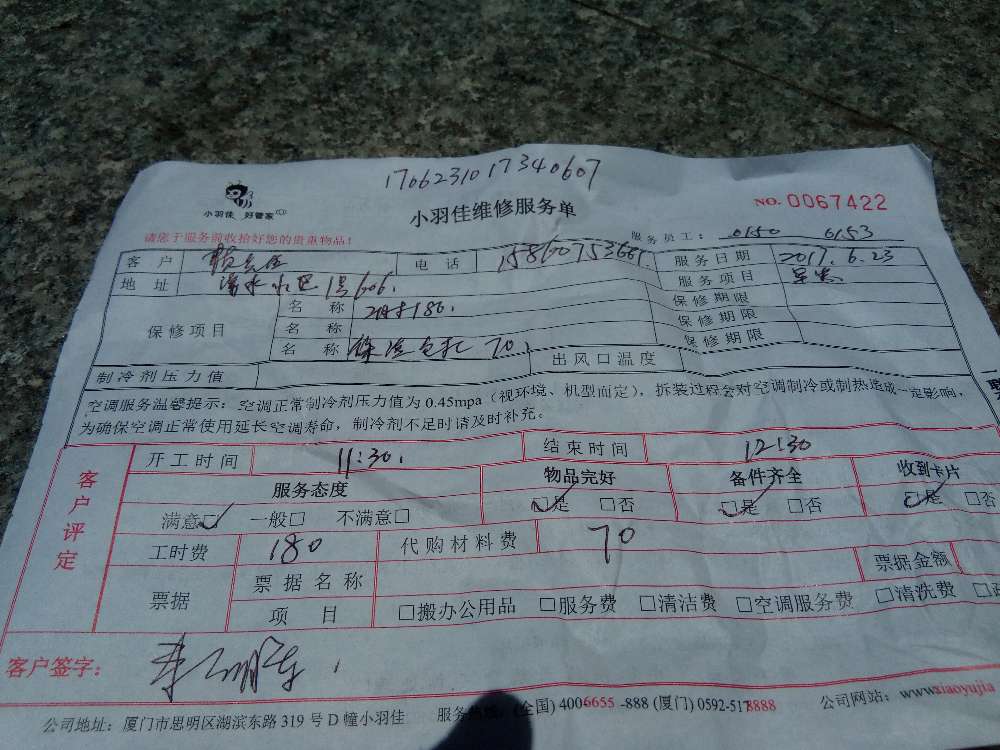 1706231017340607
小羽佳 好管家
小羽佳维修服务单
NO. 0067422
请您于服务前收拾好您的贵重物品!
服务员工: 0150 0153
客户 电话 服务日期 2017.6.23
地址 服务项目
名称 保修期限
保修项目 名称 保修期限
名称 70 保修期限
制冷剂压力值 出风口温度
空调服务温馨提示:空调正常制冷剂压力值为0.45mpa(视环境、机型而定),拆装过程会对空调制冷或制热造成一定影响,
为确保空调正常使用延长空调寿命,制冷剂不足时请及时补充。
客户评定
开工时间 11:30 结束时间 12:30
服务态度 物品完好 备件齐全 收到卡片
满意☑ 一般□ 不满意□ ☑是 □否 ☑是 □否 ☑是 □否
工时费 180 代购材料费 70
票据 票据名称 票据金额
项目 □搬办公用品 □服务费 □清洁费 □空调服务费 □清洗费
客户签字:
公司地址:厦门市思明区湖滨东路319号D幢小羽佳 服务热线:(全国)4006655-888(厦门)0592-5178888 公司网站:www.xiaoyujia